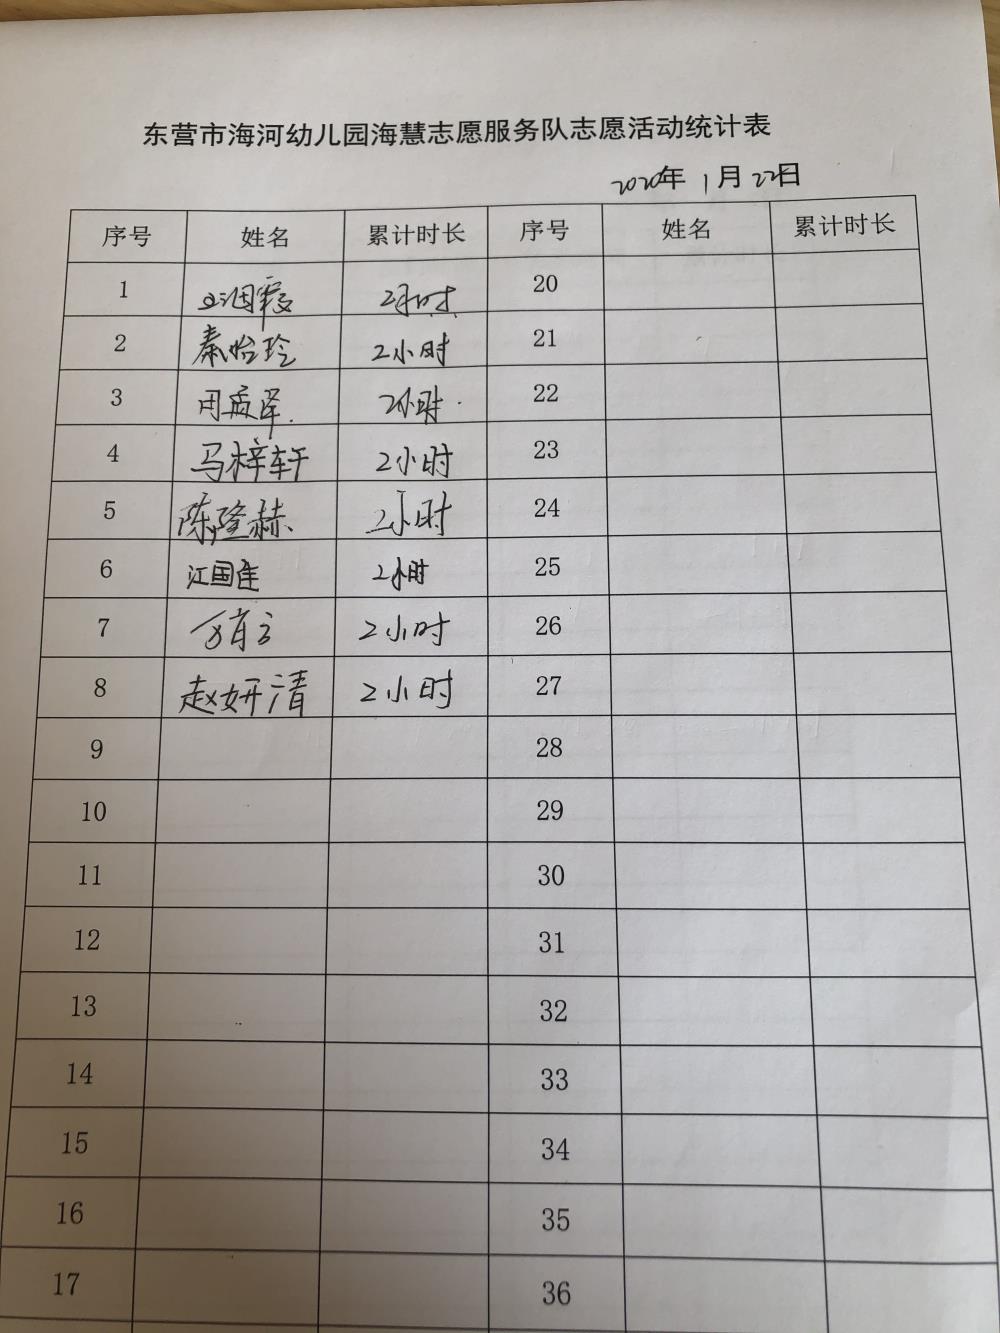 东营市海河幼儿园海慧志愿服务队志愿活动统计表
2020年1月22日
序号 姓名 累计时长 序号 姓名 累计时长
1 2小时 20
2 秦怡玲 2小时 21
3 周孟泽 2小时 22
4 马梓轩 2小时 23
5 陈隆赫 2小时 24
6 江国莲 2小时 25
7 2小时 26
8 赵妍清 2小时 27
9 28
10 29
11 30
12 31
13 32
14 33
15 34
16 35
17 36